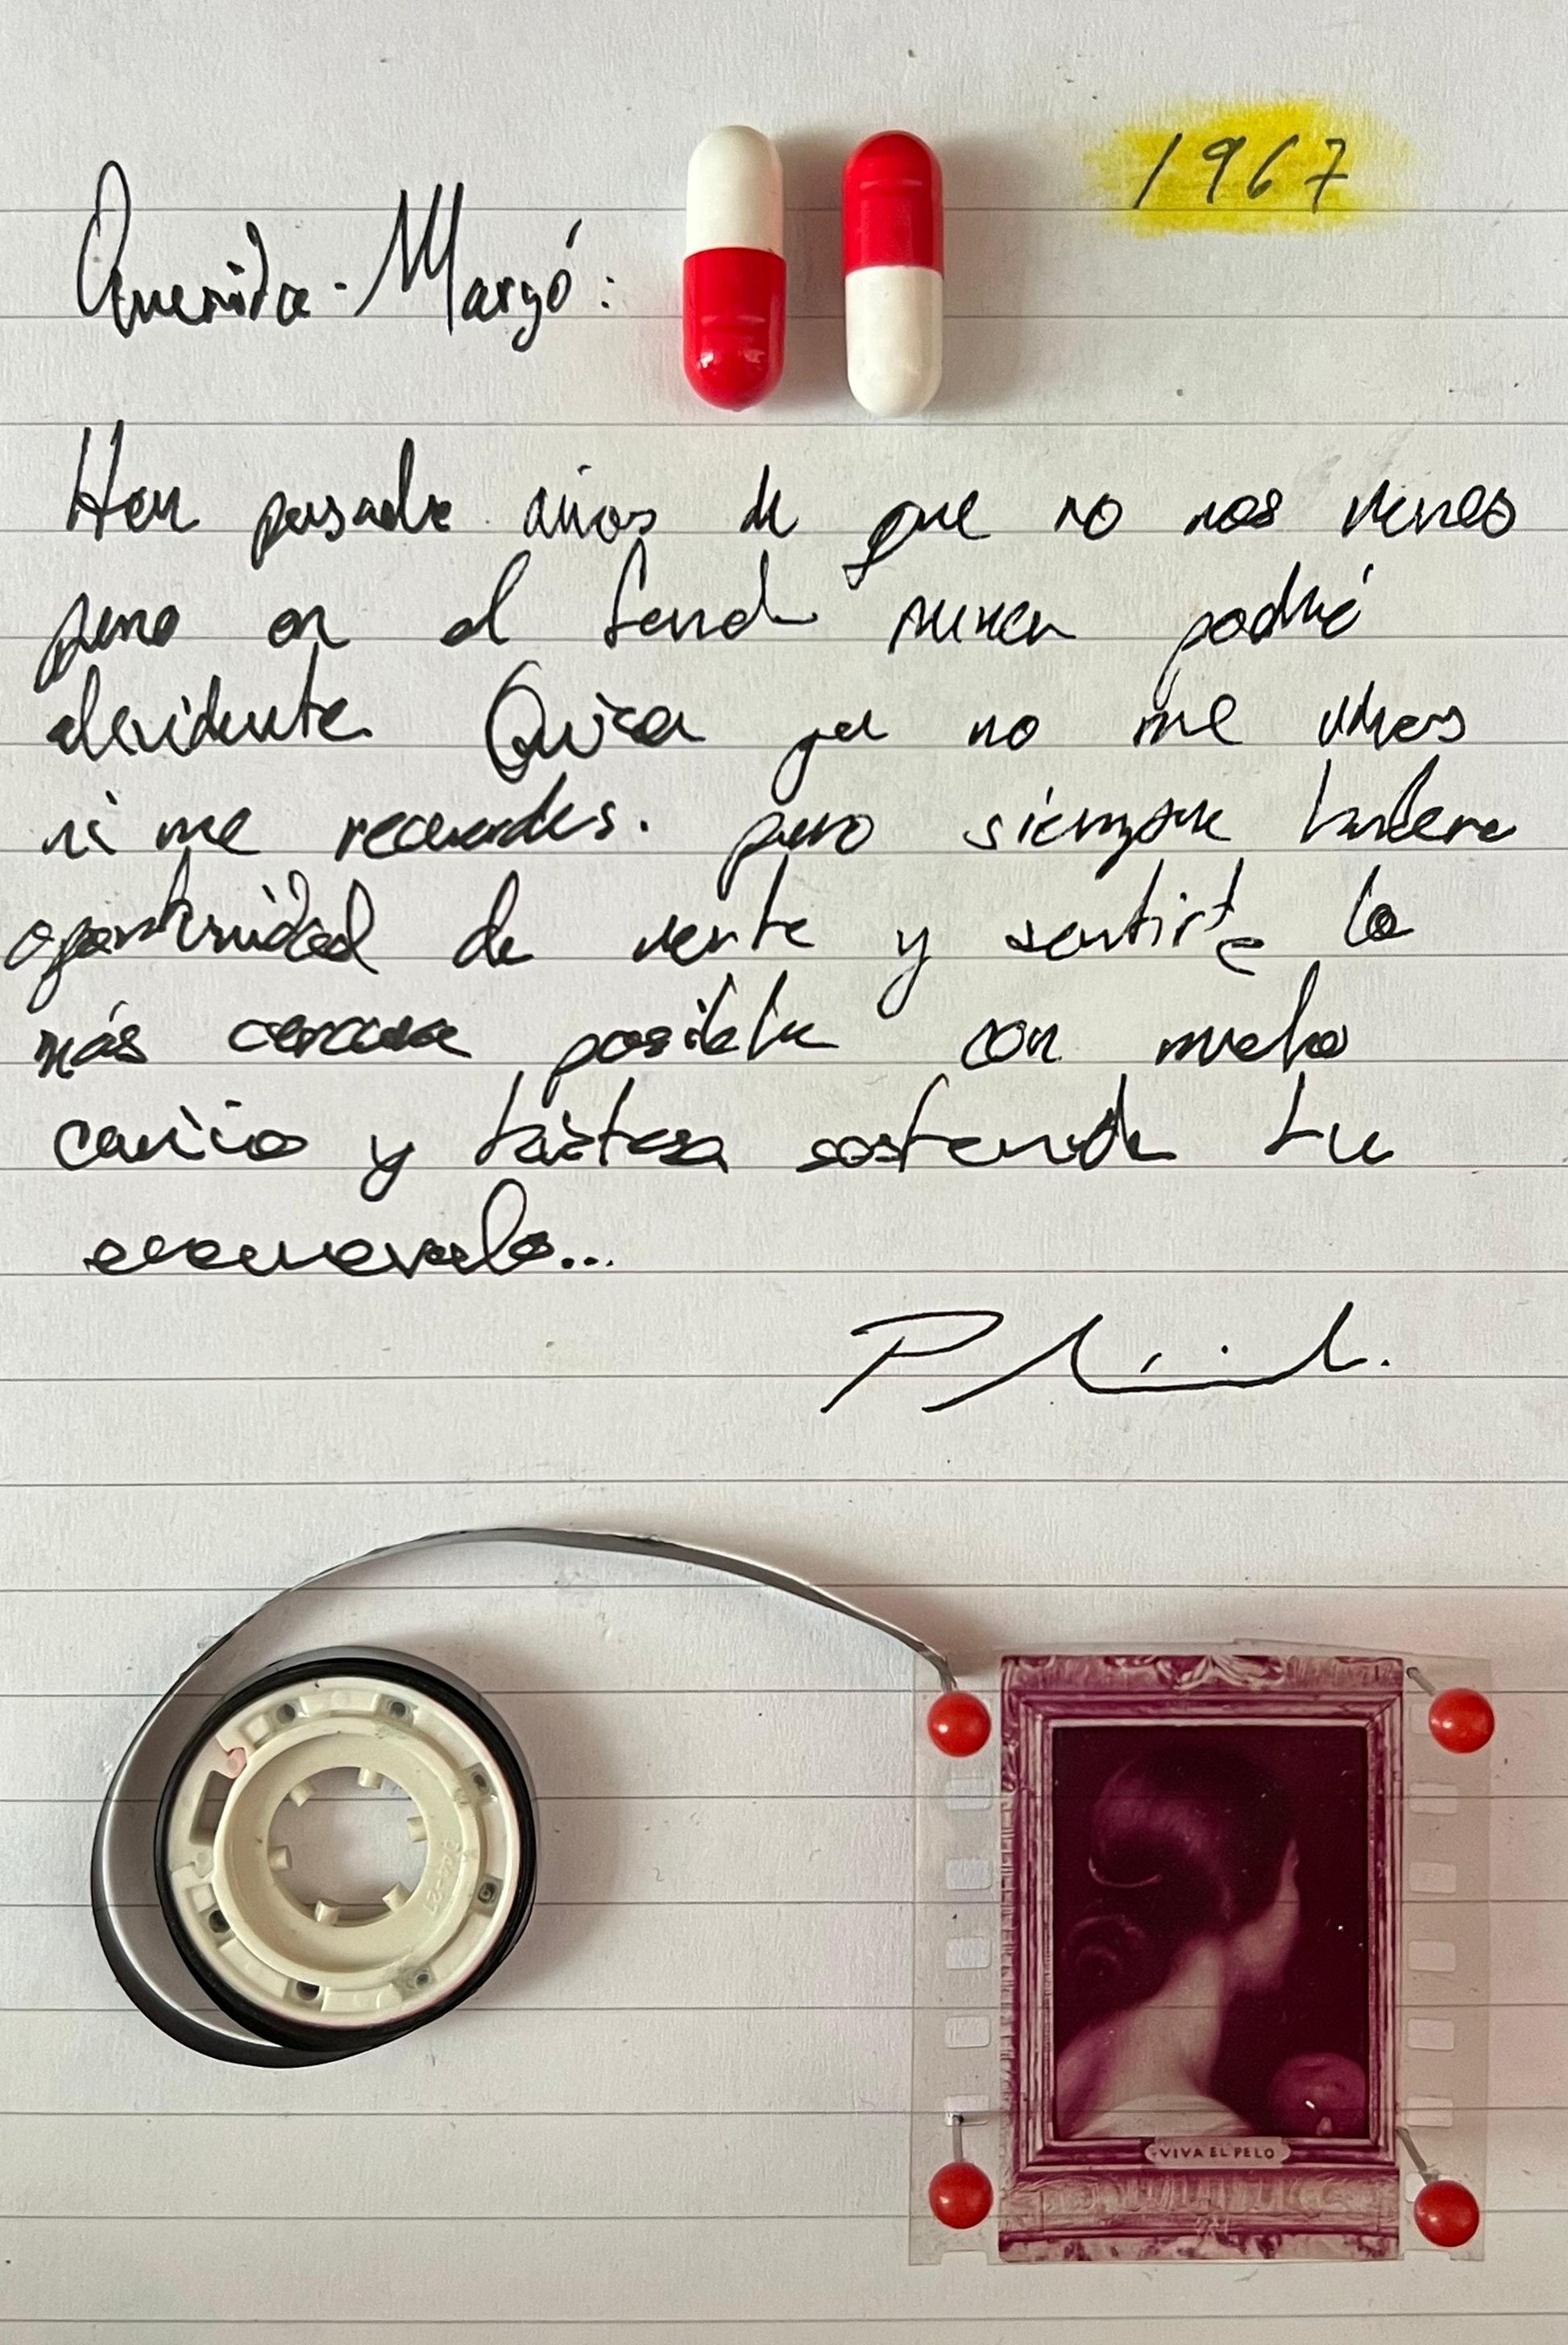 1967
Querida Margó:
Han pasado años de que no nos vemos
pero en el fondo nunca podré
olvidarte. Quiza ya no me veas
ni me recuerdes. pero siempre
oportunidad de verte y sentirte lo
más cercana posible con mucho
cariño y tristeza tu
VIVA EL PELO